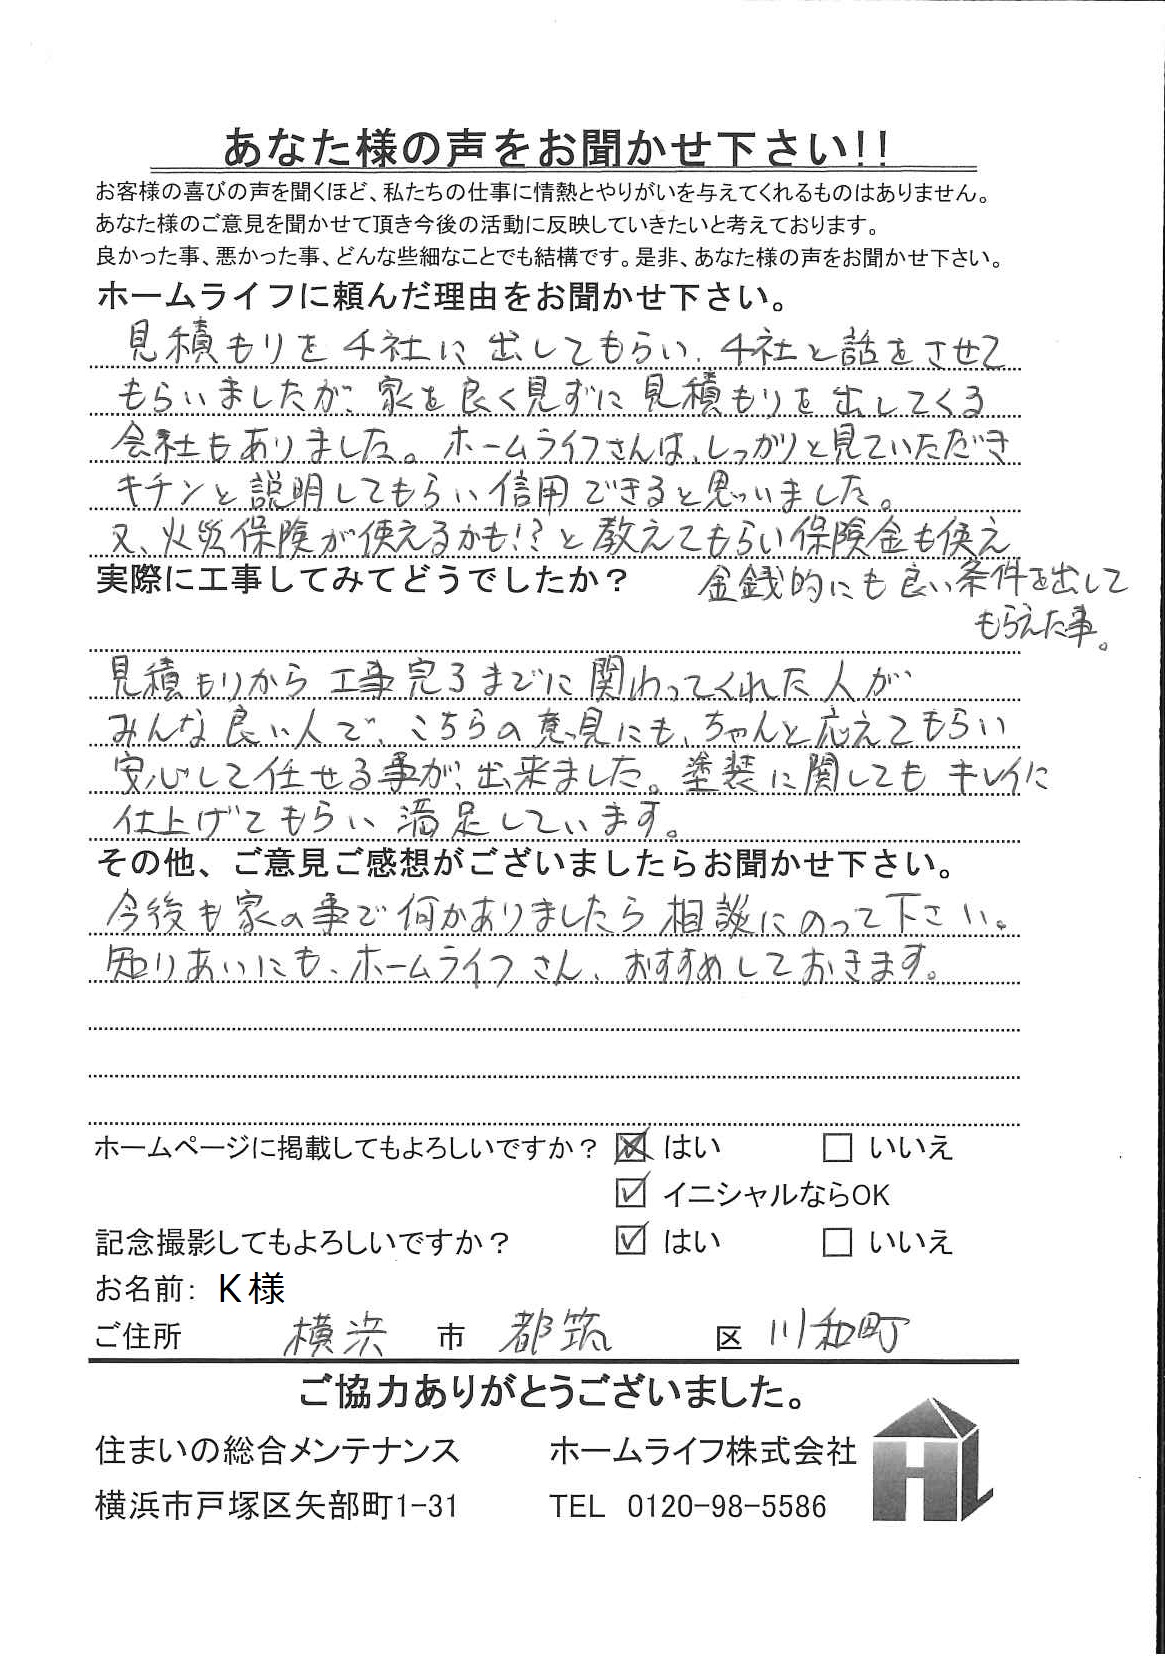 あなた様の声をお聞かせ下さい!!
お客様の喜びの声を聞くほど、私たちの仕事に情熱とやりがいを与えてくれるものはありません。
あなた様のご意見を聞かせて頂き今後の活動に反映していきたいと考えております。
良かった事、悪かった事、どんな些細なことでも結構です。是非、あなた様の声をお聞かせ下さい。
ホームライフに頼んだ理由をお聞かせ下さい。
見積もりを4社に出してもらい、4社と話をさせて
もらいましたが、家を良く見ずに見積もりを出してくる
会社もありました。ホームライフさんは、しっかりと見ていただき
キチンと説明してもらい信用できると思いました。
又、火災保険が使えるかも!?と教えてもらい保険金も使え
金銭的にも良い条件を出して
もらえた事。
実際に工事してみてどうでしたか？
見積もりから工事完了までに関わってくれた人が
みんな良い人で、こちらの意見にも、ちゃんと応えてもらい
安心して任せる事が、出来ました。塗装に関してもキレイに
仕上げてもらい満足しています。
その他、ご意見ご感想がございましたらお聞かせ下さい。
今後も家の事で何かありましたら相談にのって下さい。
知りあいにも、ホームライフさん、おすすめしておきます。
ホームページに掲載してもよろしいですか？ はい いいえ
イニシャルならOK
記念撮影してもよろしいですか？ はい いいえ
お名前: K様
ご住所 横浜 市 都筑 区 川和町
ご協力ありがとうございました。
住まいの総合メンテナンス ホームライフ株式会社
横浜市戸塚区矢部町1-31 TEL 0120-98-5586
HL